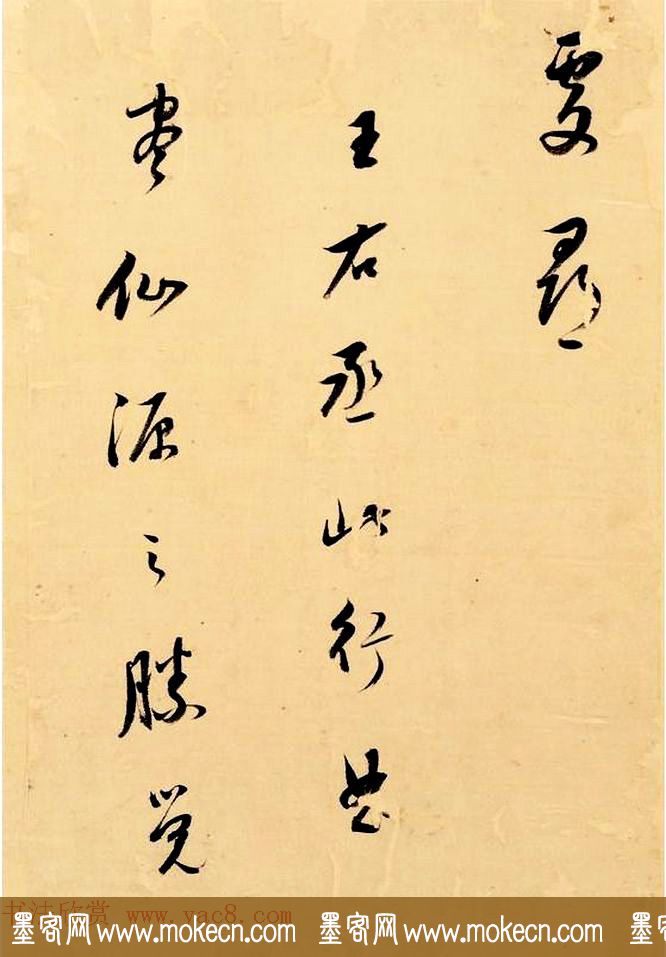 處尋
王右丞此行曲
盡仙源之勝覺
书法欣赏 www.yac8.com
墨客网 www.mokecn.com 墨客网 www.mokecn.com